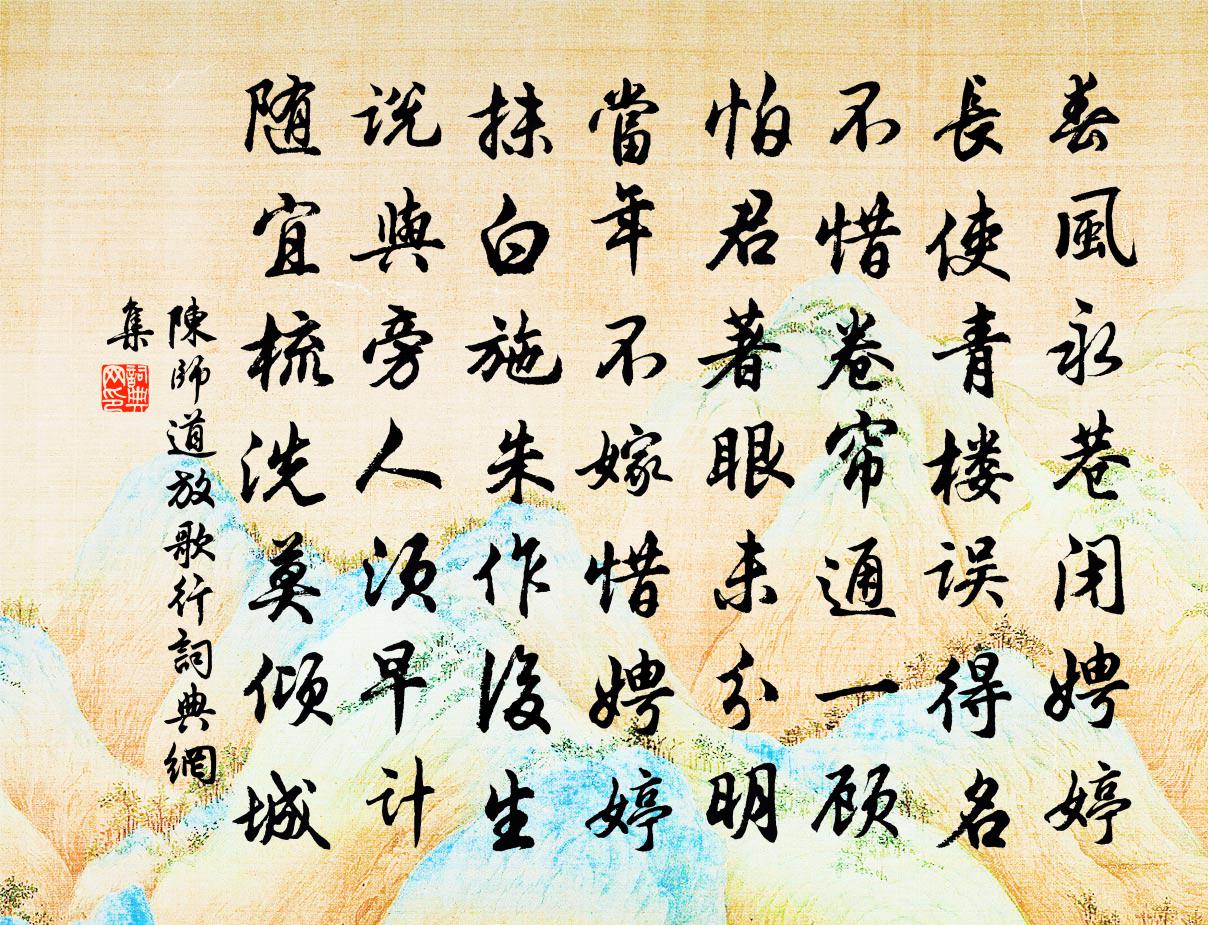 春風永巷闭娉婷
長使青楼误得名
不惜卷帘通一顾
怕君著眼未分明
當年不嫁惜娉婷
抹白施朱作後生
说與旁人须早计
随宜梳洗莫倾城
陳師道放歌行詞典網
集
詞典
网印